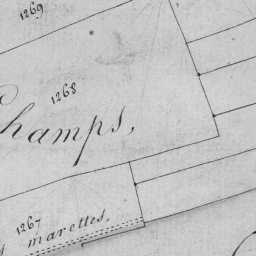 1269
1268
Champs,
1267
marettes,